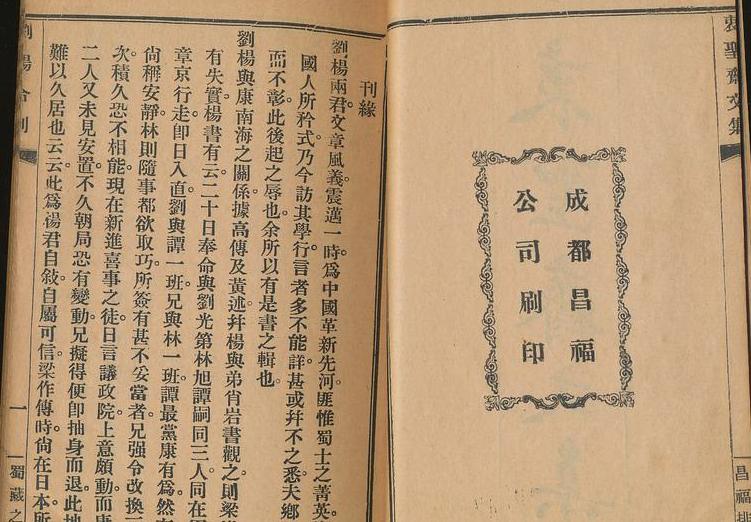 衷聖齋文集
昌福排
成都昌福
公司刷印
刊緣
劉楊兩君文章風義震邁一時。爲中國革新先河。匪惟蜀士之菁英。
國人所矜式。乃今訪其學行言者多不能詳。甚或幷不之悉。夫鄉
而不彰。此後起之辱也。余所以有是書之輯也。
劉楊與康南海之關係。據高傳及黃述幷楊與弟肖岩書觀之。則梁
有失實。楊書有云。二十日奉命與劉光第林旭譚嗣同三人同在
章京行走。卽日入直。劉與譚一班。兄與林一班。譚最黨康有爲。然
尙稱安靜。林則隨事都欲取巧。所簽有甚不妥當者。兄强令改換
次。積久恐不相能。現在新進喜事之徒。日言議政院。上意頗動。而康
二人又未見安置。不久朝局恐有變動。兄擬得便卽抽身而退。此地
難以久居也云云。此爲楊君自敍。自屬可信。梁作傳時。尙在日本所
劉楊合刊
一
蜀藏之